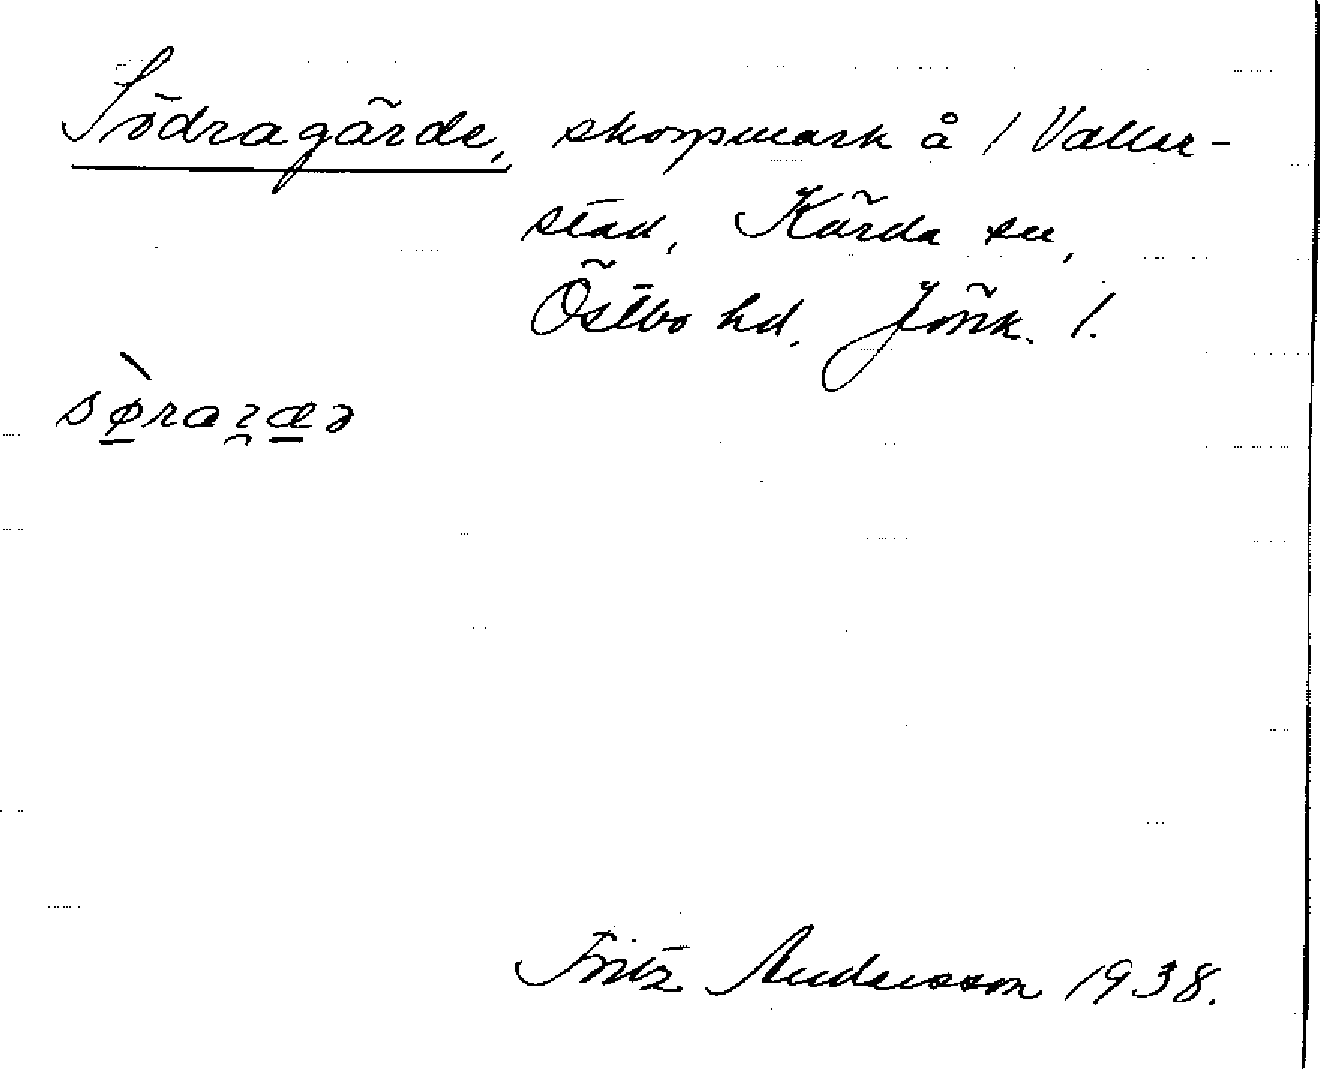 Södragärde, skogsmark å 1 Valler-
stad, Kärda sn,
Östbo hd, Jönk. l.
Fritz Andersson 1938.